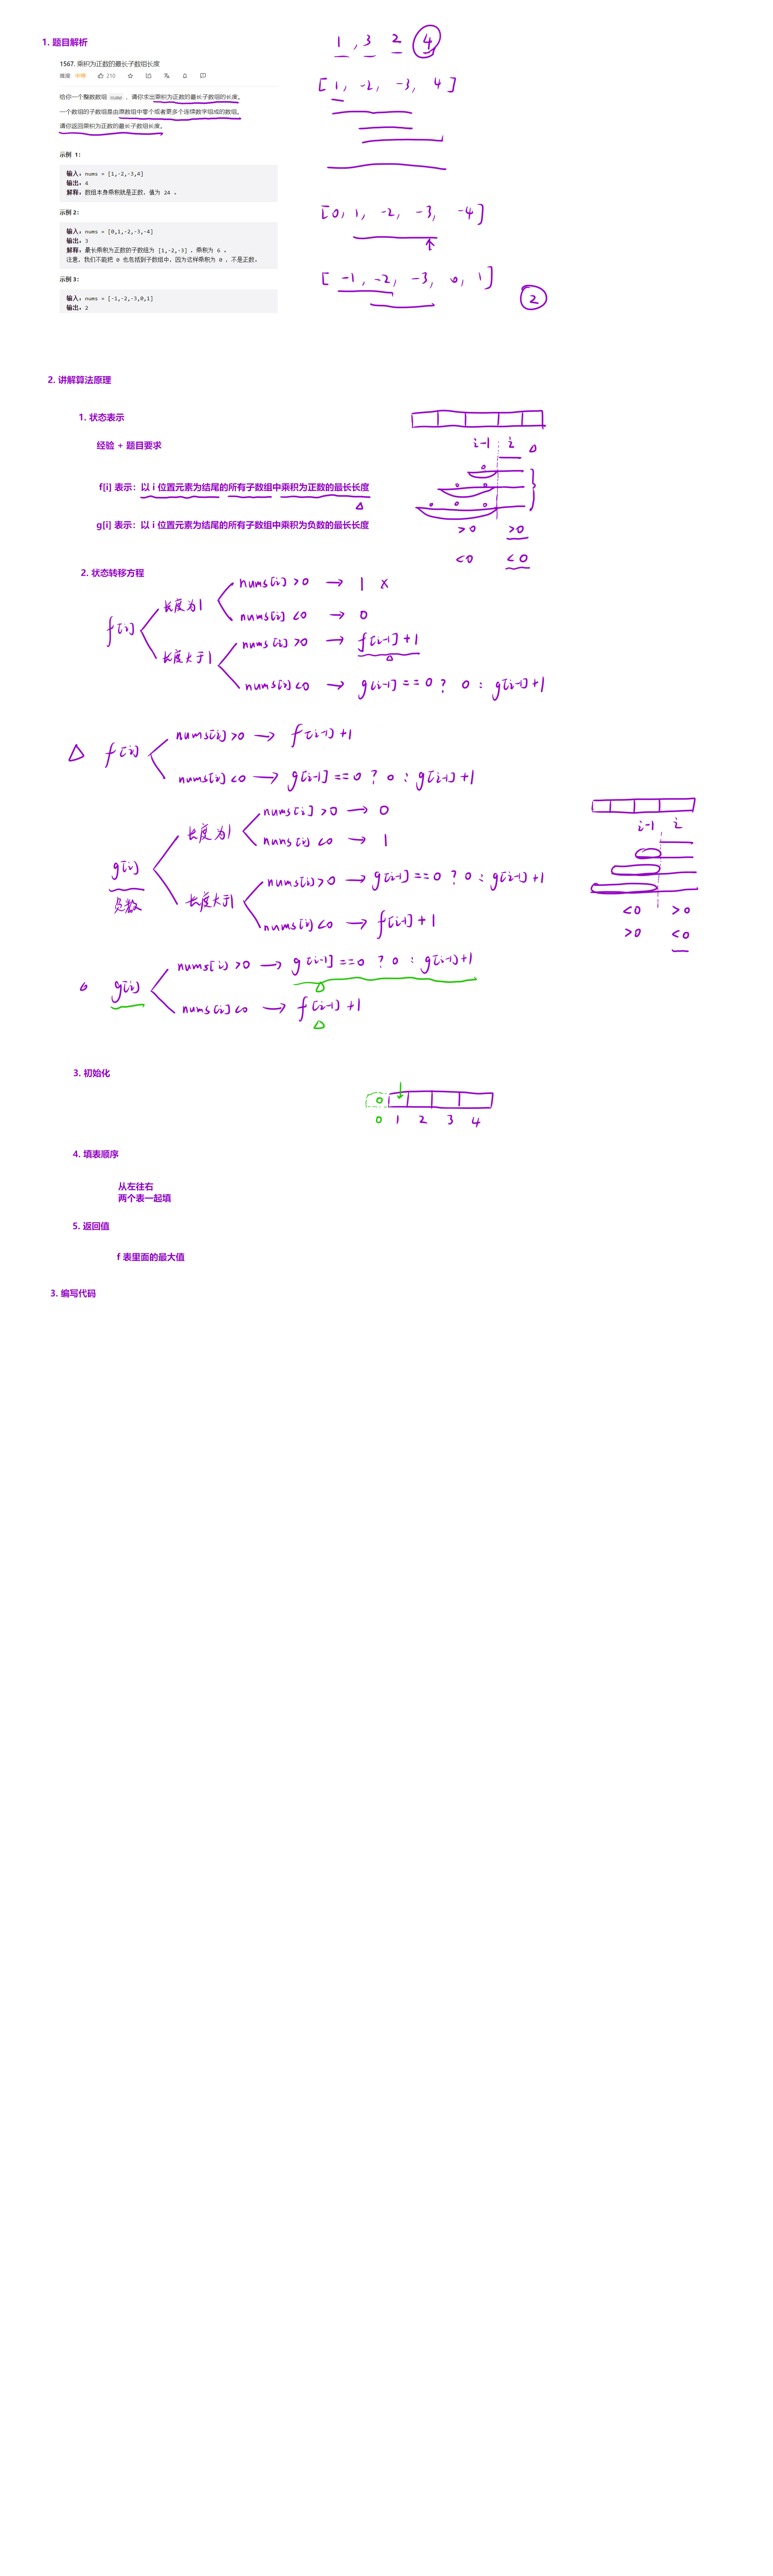 1. 题目解析
1567. 乘积为正数的最长子数组长度
难度 中等 210
给你一个整数数组 nums ，请你求出乘积为正数的最长子数组的长度。
一个数组的子数组是由原数组中零个或者更多个连续数字组成的数组。
请你返回乘积为正数的最长子数组长度。
示例 1：
输入：nums = [1,-2,-3,4]
输出：4
解释：数组本身乘积就是正数，值为 24 。
示例 2：
输入：nums = [0,1,-2,-3,-4]
输出：3
解释：最长乘积为正数的子数组为 [1,-2,-3] ，乘积为 6 。
注意，我们不能把 0 也包括到子数组中，因为这样乘积为 0 ，不是正数。
示例 3：
输入：nums = [-1,-2,-3,0,1]
输出：2
1 , 3 2 4
[ 1, -2, -3, 4 ]
[0, 1, -2, -3, -4 ]
[ -1, -2, -3, 0, 1 ]
2
2. 讲解算法原理
1. 状态表示
经验 + 题目要求
f[i] 表示：以 i 位置元素为结尾的所有子数组中乘积为正数的最长长度
g[i] 表示：以 i 位置元素为结尾的所有子数组中乘积为负数的最长长度
i-1 i
>0 >0
<0 <0
2. 状态转移方程
f[i]
长度为1
nums[i] >0 → 1 x
nums[i] <0 → 0
长度大于1
nums[i] >0 → f[i-1] +1
nums[i] <0 → g[i-1] == 0 ? 0 : g[i-1] +1
△ f[i]
nums[i] >0 → f[i-1] +1
nums[i] <0 → g[i-1] == 0 ? 0 : g[i-1] +1
g[i]
负数
长度为1
nums[i] >0 → 0
nums[i] <0 → 1
长度大于1
nums[i] >0 → g[i-1] == 0 ? 0 : g[i-1] +1
nums[i] <0 → f[i-1] +1
i-1 i
<0 >0
>0 <0
g[i]
nums[i] >0 → g[i-1] == 0 ? 0 : g[i-1] +1
nums[i] <0 → f[i-1] +1
3. 初始化
0
0 1 2 3 4
4. 填表顺序
从左往右
两个表一起填
5. 返回值
f 表里面的最大值
3. 编写代码